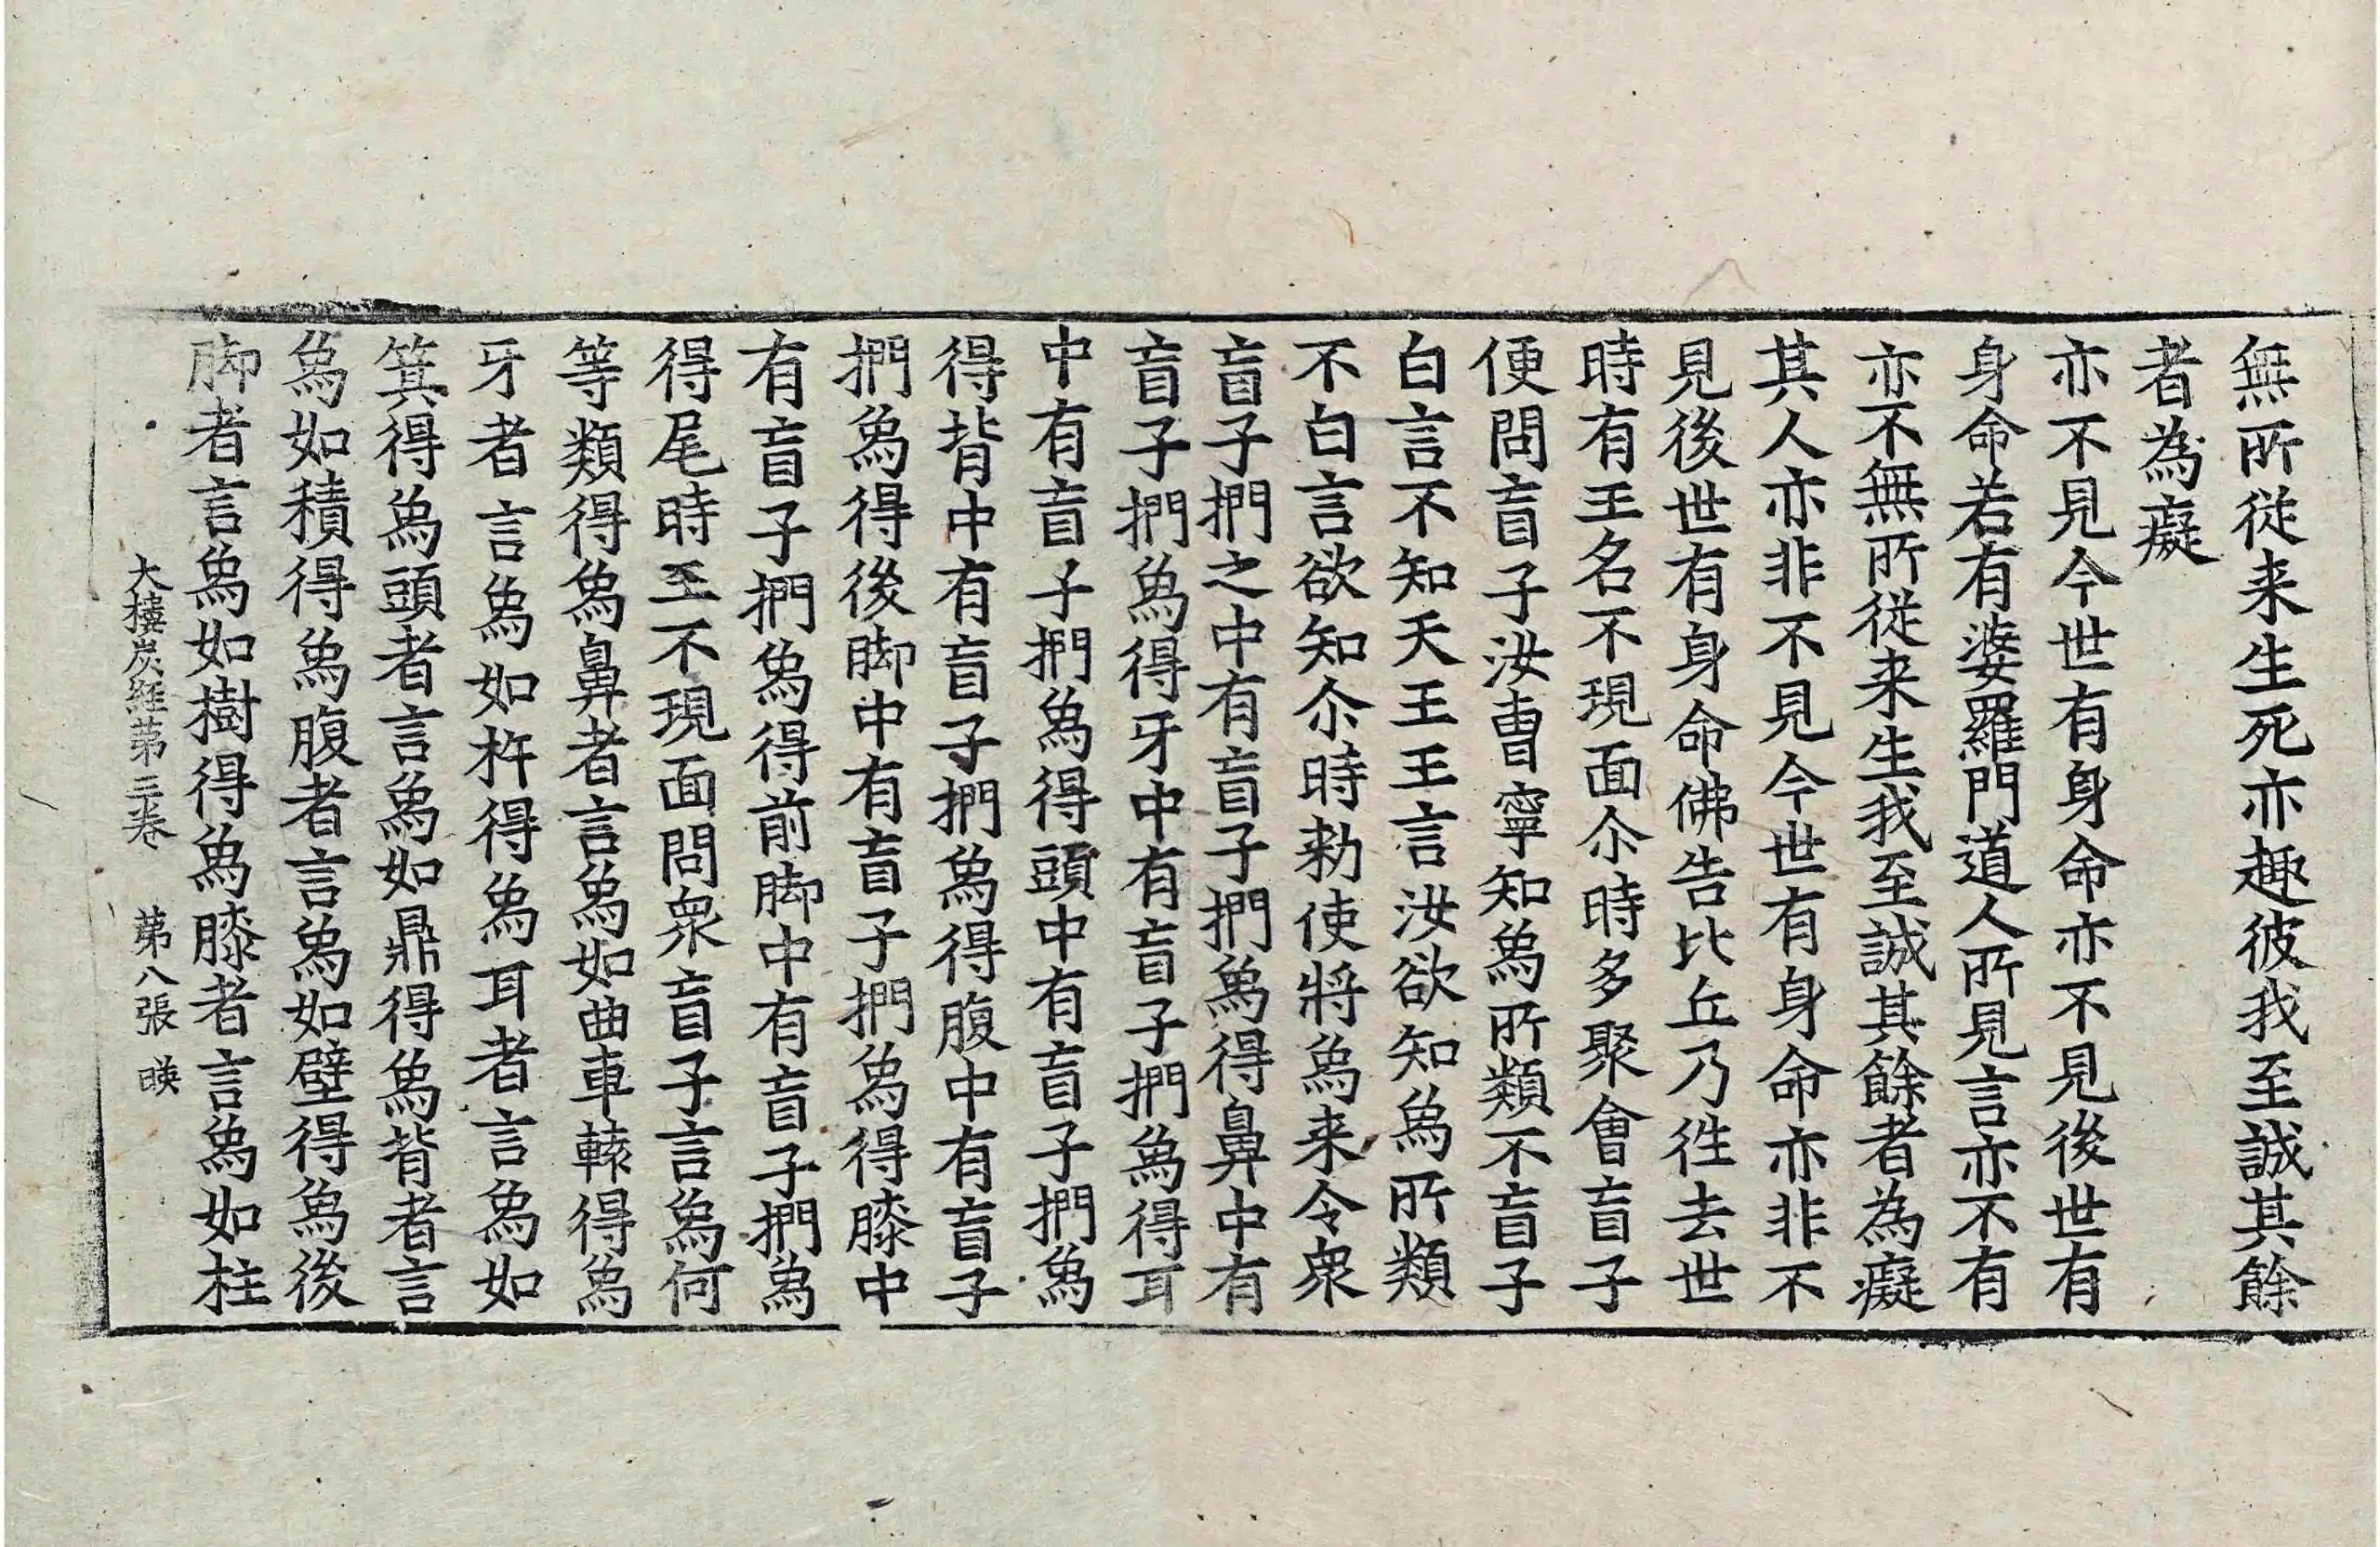 無所従来生死亦趣彼我至誠其餘
者為癡
亦不見今世有身命亦不見後世有
身命若有婆羅門道人所見言亦不有
亦不無所従来生我至誠其餘者為癡
其人亦非不見今世有身命亦非不
見後世有身命佛告比丘乃徃去世
時有王名不現面尒時多聚會盲子
便問盲子汝曹寧知為所類不盲子
白言不知天王王言汝欲知為所類
不白言欲知尒時勑使將為来令衆
盲子捫之中有盲子捫為得鼻中有
盲子捫為得牙中有盲子捫為得耳
中有盲子捫為得頭中有盲子捫為
得背中有盲子捫為得腹中有盲子
捫為得後脚中有盲子捫為得膝中
有盲子捫為得前脚中有盲子捫為
得尾時王不現面問衆盲子言為何
等類得為鼻者言為如曲車轅得為
牙者言為如杵得為耳者言為如
箕得為頭者言為如鼎得為背者言
為如積得為腹者言為如壁得為後
脚者言為如樹得為膝者言為如柱
大樓炭経苐三卷 苐八張 暎